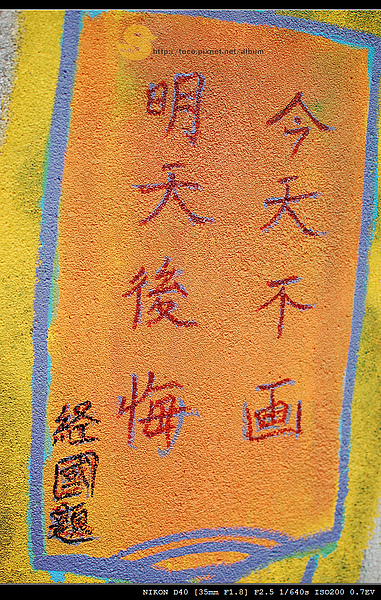 http://toco.pixnet.net/album
今天不画
明天後悔
経國題
NIKON D40 [35mm F1.8] F2.5 1/640s ISO200 0.7EV